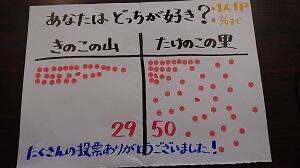 あなたは どっちが好き？
・1人1P
きのこの山
たけのこの里
29
50
たくさんの投票ありがとうございました！